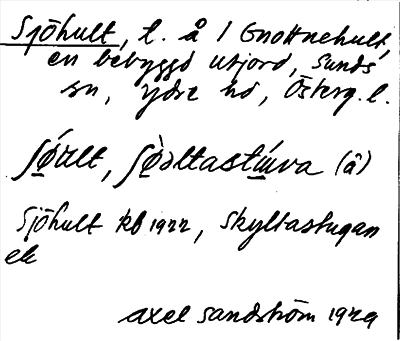 Sjöhult, t. å 1 Gnottnehult,
en bebyggd utjord, Sunds
sn, Ydre hd, Österg. l.
Sjöhult kb 1922, Skyltastugan
ek
Axel Sandström 1929